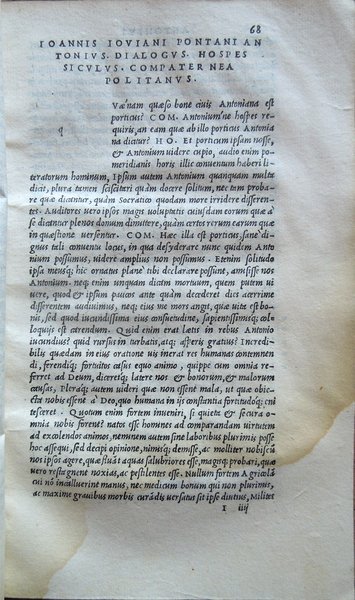 68
IOANNIS IOVIANI PONTANI AN
TONIVS. DIALOGVS. HOSPES
SICVLVS. COMPATER NEA
POLITANVS.
Vænam quæso bone ciuis Antoniana est
porticus? COM. Antonium'ne hospes re
quiris, an eam quæ ab illo porticus Antonia
q
na dicatur? HO. Et porticum ipsam nosse,
& Antonium uidere cupio, audio enim po
meridianis horis illic conuentum haberi li
teratorum hominum, Ipsum autem Antonium quanquam multa
dicit, plura tamen sciscitari quàm docere solitum, nec tam proba
re quæ dicantur, quàm Socratico quodam more irridere differen
tes. Auditores uero ipsos magis uoluptatis cuiusdam eorum quæ à
se dicantur plenos domum dimittere, quàm certos rerum earum quæ
in quæstione uersentur. COM. Hæc illa est porticus, sanè di
gnus tali conuentu locus, in qua desyderare nunc quidem Anto
nium possumus, uidere amplius non possumus. Etenim solitudo
ipsa mœsusq; hic ornatus planè tibi declarare possunt, amisisse nos
Antonium. neq; enim unquam dicam mortuum, quem putem ui
uere, quod & ipsum paucos ante quàm decederet dies acerrime
differentem audiuimus, neq; eius me mors angit, quæ uitæ est bo
nis, sed quod iucundissima eius consuetudine, sapientissimisq; col
loquijs est carendum. Quid enim erat latis in rebus Antonio
iucundius? quid rursus in turbatis, atq; asperis gratius? Incredi
bilis quædam in eius oratione uis inerat res humanas contemnen
di, ferendiq; fortuitos casus æquo animo, quippe cum omnia re
ferret ad Deum, diceretq; latere nos & bonorum, & malorum
causas, Pleraq; autem uideri quæ non essent mala, ut quæ obie
cta nobis essent à Deo, quo humana in ijs constantia fortitudoq; eni
tesceret. Quotum enim fortem inueniri, si quieta & secura o
mnia nobis forent? natos esse homines ad comparandam uirtutem
ad excolendos animos, neminem autem sine laboribus plurimis posse
hoc assequi, sed decipi opinione, nimisq; demisse, ac molliter nobiscū
nos ipsos agere, quæ fluāt aquas salubriores esse, magisq; probari, quæ
uero restagnent noxias, ac pestilentes esse. Nullum fortem Agricolā
cui nō inalluerint manus, nec medicum bonum qui non plurimis,
ac maxime grauibus morbis curādis uersatus sit ipse diutius, Milites
I iiij